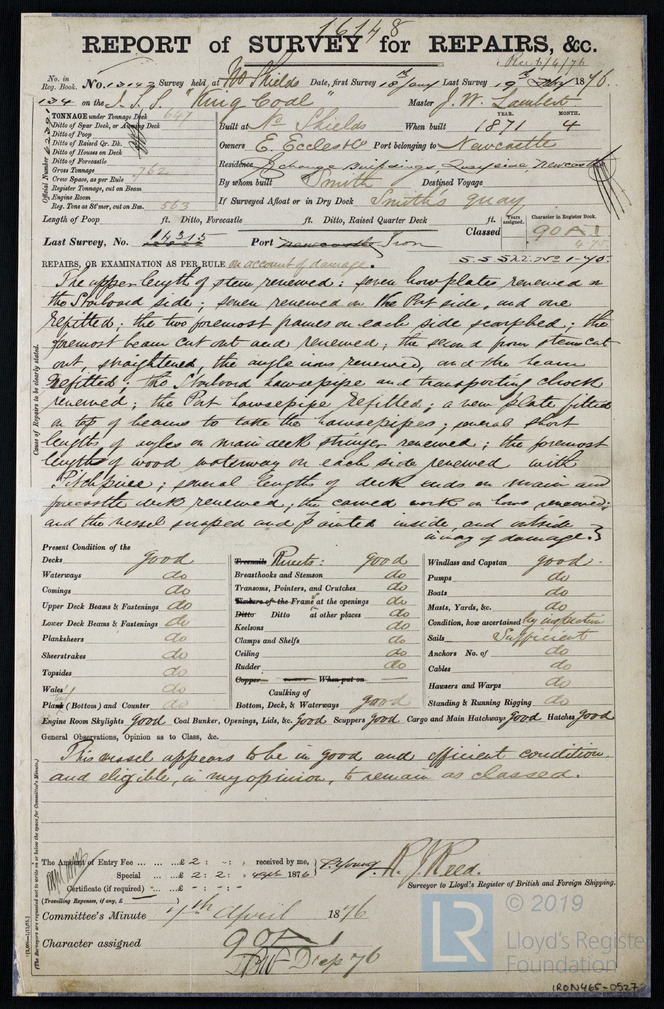 16148
REPORT of SURVEY for REPAIRS, &c.
No. in Reg. Book. No. 13142 Survey held at No Shields Date, first Survey 18th Jany Last Survey 19th Feby 1876.
134 on the S.S.S. "King Coal" Master J. W. Lambert
TONNAGE under Tonnage Deck 647
Ditto of Spar Deck, or Awning Deck
Ditto of Poop
Ditto of Raised Qr. Dk.
Ditto of Houses on Deck
Ditto of Forecastle
Gross Tonnage 762
Crew Space, as per Rule
Register Tonnage, cut on Beam
Engine Room
Reg. Tons as St'mer, cut on Bm. 563
Official Number
Built at No Shields When built YEAR. 1871 MONTH. 4
Owners E. Eccles & Co Port belonging to Newcastle
Residence Exchange Buildings, Quayside, Newcastle
By whom built Smith Destined Voyage
If Surveyed Afloat or in Dry Dock Smith's quay
Length of Poop ft. Ditto, Forecastle ft. Ditto, Raised Quarter Deck ft.
Years assigned. Character in Register Book.
Last Survey, No. 14315 Port Newcastle Iron Classed 90 A 1
4.75
REPAIRS, OR EXAMINATION AS PER RULE on account of damage.
Cause of Repairs to be clearly stated.
The upper length of stem renewed; seven bow plates renewed on
the Starboard side; seven renewed on the Port side, and one
refitted; the two foremost frames on each side scarphed; the
foremost beam cut out and renewed; the second from stem cut
out, straightened, the angle irons renewed, and the beam
refitted; the Starboard hawsepipe and transporting chock
renewed; the Port hawsepipe refitted; a new plate fitted
on top of beams to take the hawsepipes; several short
lengths of angles on main deck stringer renewed; the foremost
lengths of wood waterway on each side renewed with
Pitchpine; several lengths of deck ends on main and
forecastle deck renewed; the carved work on bows renewed;
and the vessel scraped and painted inside, and outside
in way of damage.
Present Condition of the
Decks good
Waterways do
Comings do
Upper Deck Beams & Fastenings do
Lower Deck Beams & Fastenings do
Planksheers do
Sheerstrakes do
Topsides do
Wales do
Plank (Bottom) and Counter do
Treenails Rivets: good
Breasthooks and Stemson do
Transoms, Pointers, and Crutches do
Timbers of the Frame at the openings do
Ditto Ditto at other places do
Keelsons do
Clamps and Shelfs do
Ceiling do
Rudder do
Copper When put on
Caulking of
Bottom, Deck, & Waterways good
Windlass and Capstan good.
Pumps do
Boats do
Masts, Yards, &c. do
Condition, how ascertained by inspection
Sails Sufficient
Anchors No. of do
Cables do
Hawsers and Warps do
Standing & Running Rigging do
Engine Room Skylights good Coal Bunker, Openings, Lids, &c. good Scuppers good Cargo and Main Hatchways good Hatches good
General Observations, Opinion as to Class, &c.
This vessel appears to be in good and efficient condition,
and eligible, in my opinion, to remain as classed.
(The Surveyors are requested not to write on or below the space for Committee's Minute.)
The Amount of Entry Fee ... £ 2: -: received by me,
Special ... £ 2: 2: 1876
Certificate (if required)
(Travelling Expenses, if any, £ )
R. J. Reed.
Surveyor to Lloyd's Register of British and Foreign Shipping.
Committee's Minute 4th April 1876
Character assigned 90 A 1
© 2019
LR
Lloyd's Register
Foundation
IRON465-0527